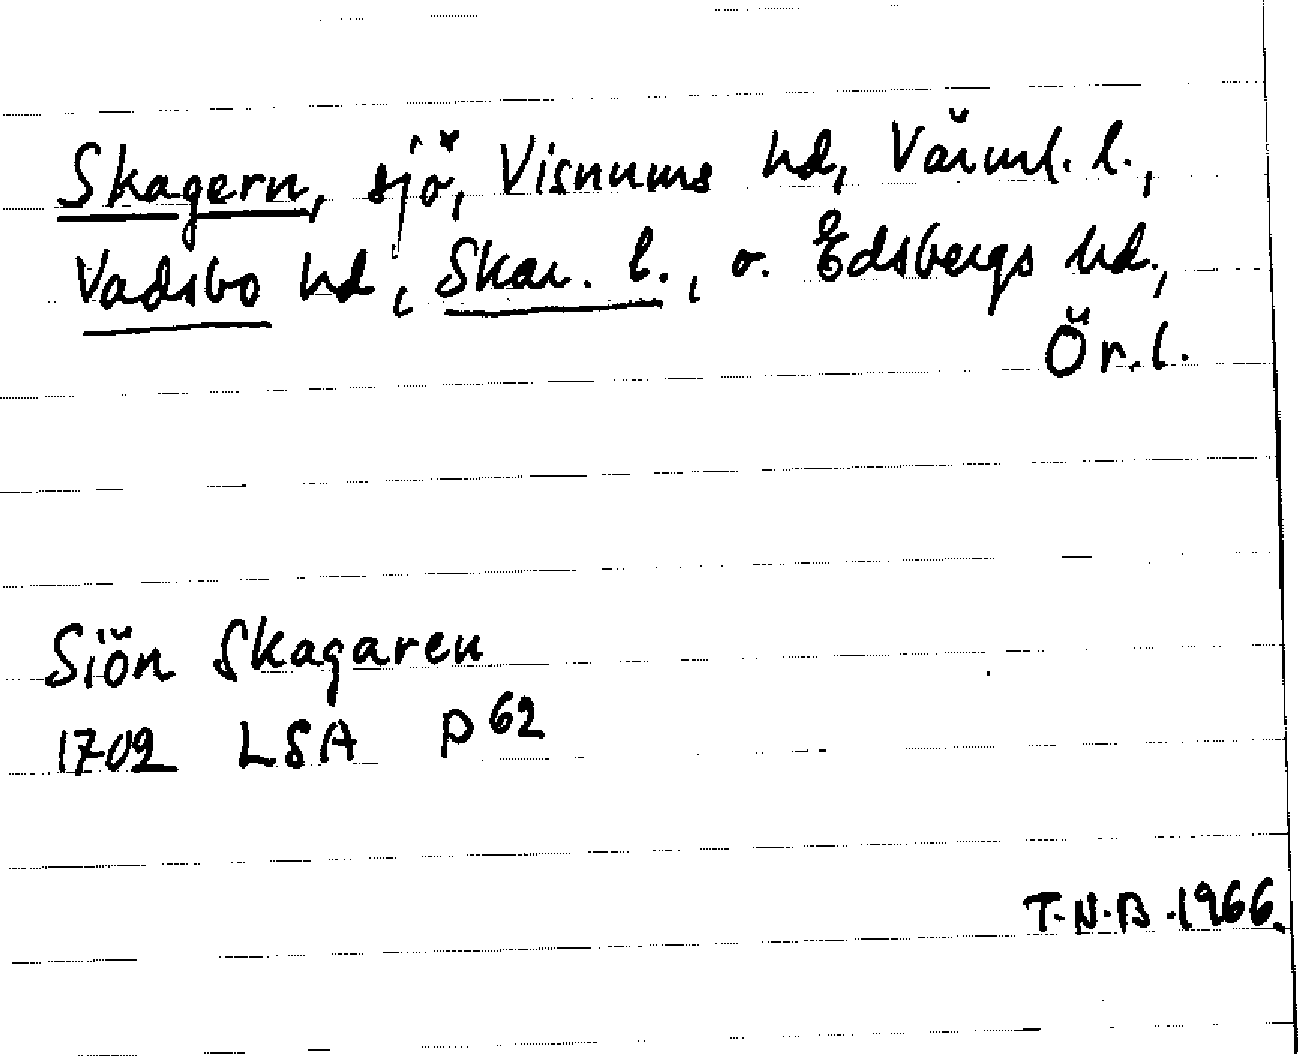 Skagern, sjö, Visnums hd, Värml. l.,
Vadsbo hd, Skar. l., o. Edsbergs hd.,
Ör. l.
Siön Skagaren
1702 LSA P 62
T.N.B. 1966.